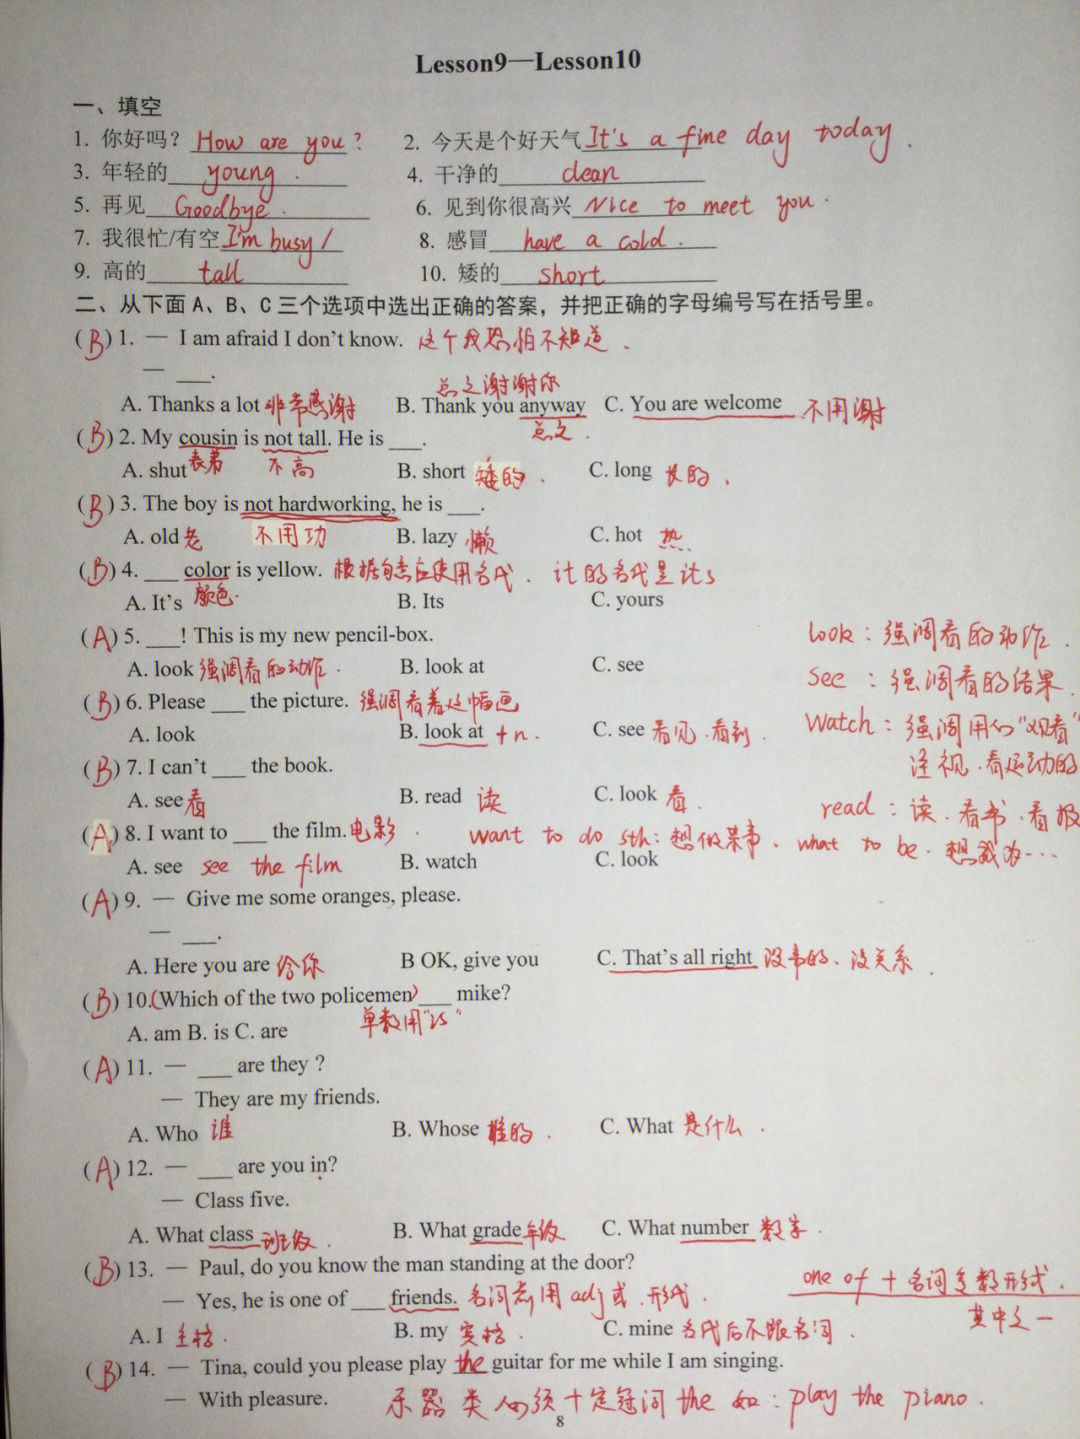 Lesson9—Lesson10
一、填空
1. 你好吗? How are you? 2. 今天是个好天气 It's a fine day today.
3. 年轻的 young. 4. 干净的 clean
5. 再见 Goodbye. 6. 见到你很高兴 Nice to meet you.
7. 我很忙/有空 I'm busy/ 8. 感冒 have a cold.
9. 高的 tall 10. 矮的 short
二、从下面 A、B、C 三个选项中选出正确的答案，并把正确的字母编号写在括号里。
(B) 1. — I am afraid I don't know. 这个我恐怕不知道.
— ___.
总之谢谢你
A. Thanks a lot 非常感谢 B. Thank you anyway C. You are welcome 不用谢
总之.
(B) 2. My cousin is not tall. He is ___.
A. shut 表弟 不高 B. short 矮的. C. long 长的、
(B) 3. The boy is not hardworking, he is ___.
A. old 老 不用功 B. lazy 懒 C. hot 热.
(B) 4. ___ color is yellow. 根据句意应使用名代. 让的名代是 its
A. It's 颜色. B. Its C. yours
(A) 5. ___! This is my new pencil-box.
look: 强调看的动作.
A. look 强调看的动作. B. look at C. see
see: 强调看的结果.
(B) 6. Please ___ the picture. 强调看着这幅画
A. look B. look at +n. C. see 看见.看到.
watch: 强调用心"观看"
注视.看运动的
(B) 7. I can't ___ the book.
A. see 看 B. read 读 C. look 看.
read: 读.看书.看报
(A) 8. I want to ___ the film. 电影. want to do sth: 想做某事、what to be. 想成为...
A. see see the film B. watch C. look
(A) 9. — Give me some oranges, please.
— ___.
A. Here you are 给你 B OK, give you C. That's all right 没事的、没关系.
(B) 10.(Which of the two policemen)___ mike?
单数用"is"
A. am B. is C. are
(A) 11. — ___ are they ?
— They are my friends.
A. Who 谁 B. Whose 谁的. C. What 是什么.
(A) 12. — ___ are you in?
— Class five.
A. What class 班级. B. What grade 年级 C. What number 数字.
(B) 13. — Paul, do you know the man standing at the door?
one of + 名词复数形式.
其中之一
— Yes, he is one of ___ friends. 名词前用 adj 或.形代.
A. I 主格. B. my 宾格. C. mine 名代后不跟名词.
(B) 14. — Tina, could you please play the guitar for me while I am singing.
— With pleasure. 乐器类 必须+定冠词 the 如: play the piano.
8